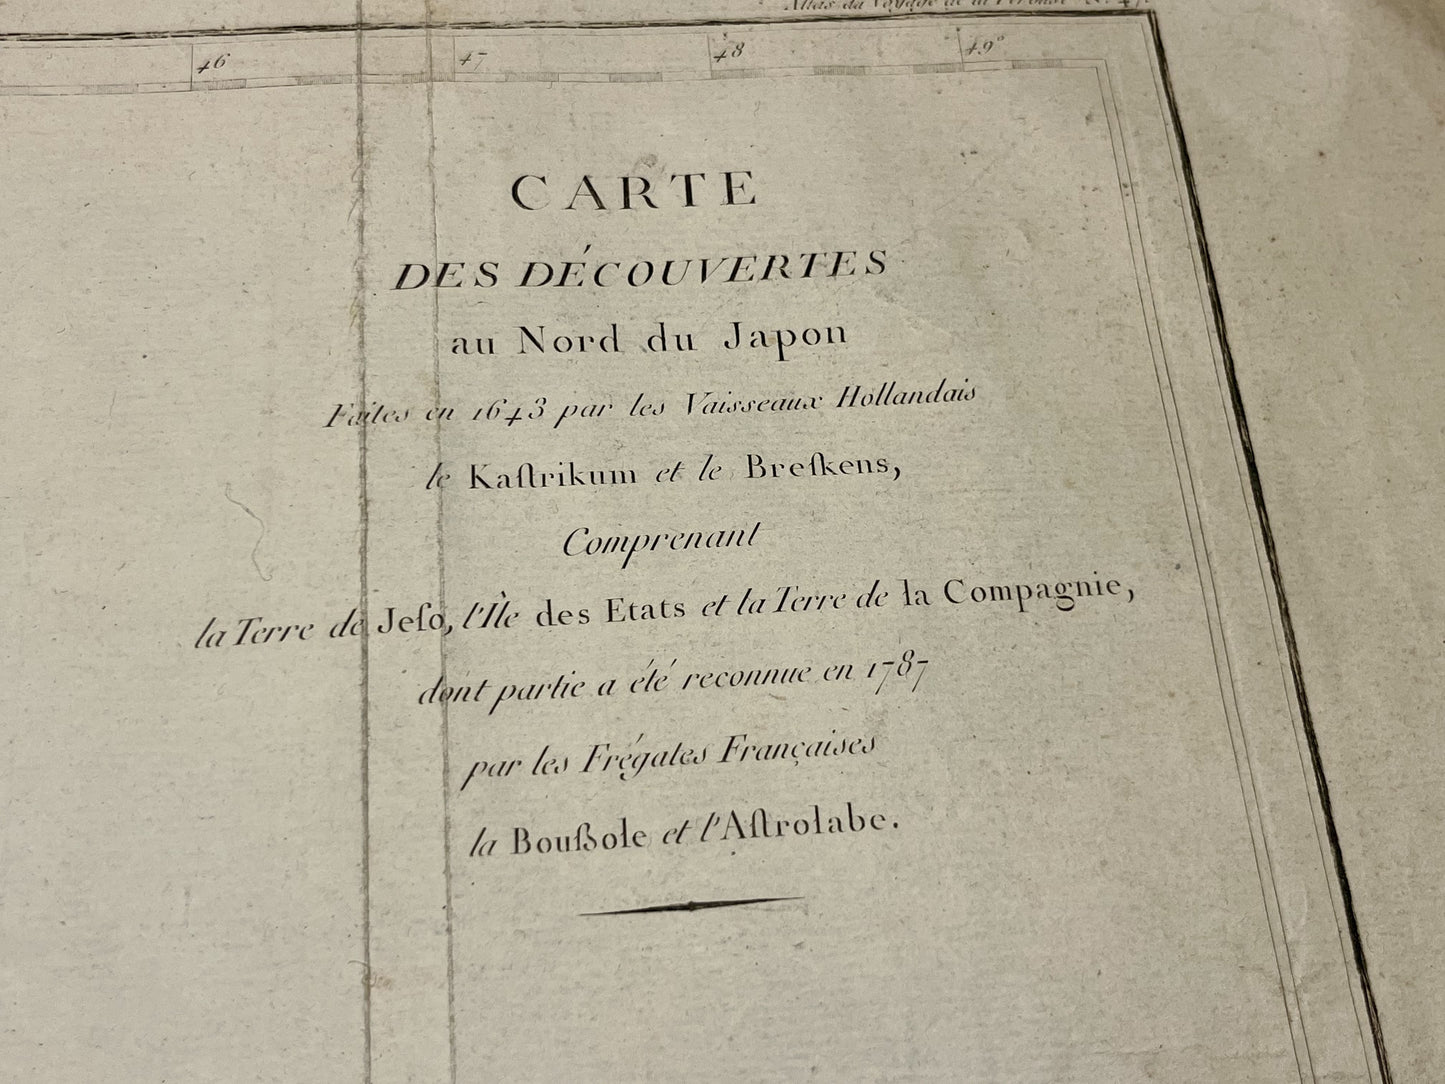 Atlas du Voyage de la Pérouse N.° 47.
46 47 48 49°
CARTE
DES DÉCOUVERTES
au Nord du Japon
Faites en 1643 par les Vaisseaux Hollandais
le Kaſtrikum et le Breſkens,
Comprenant
la Terre de Jeſo, l'Île des Etats et la Terre de la Compagnie,
dont partie a été reconnue en 1787
par les Frégates Françaises
la Bouſsole et l'Aſtrolabe.